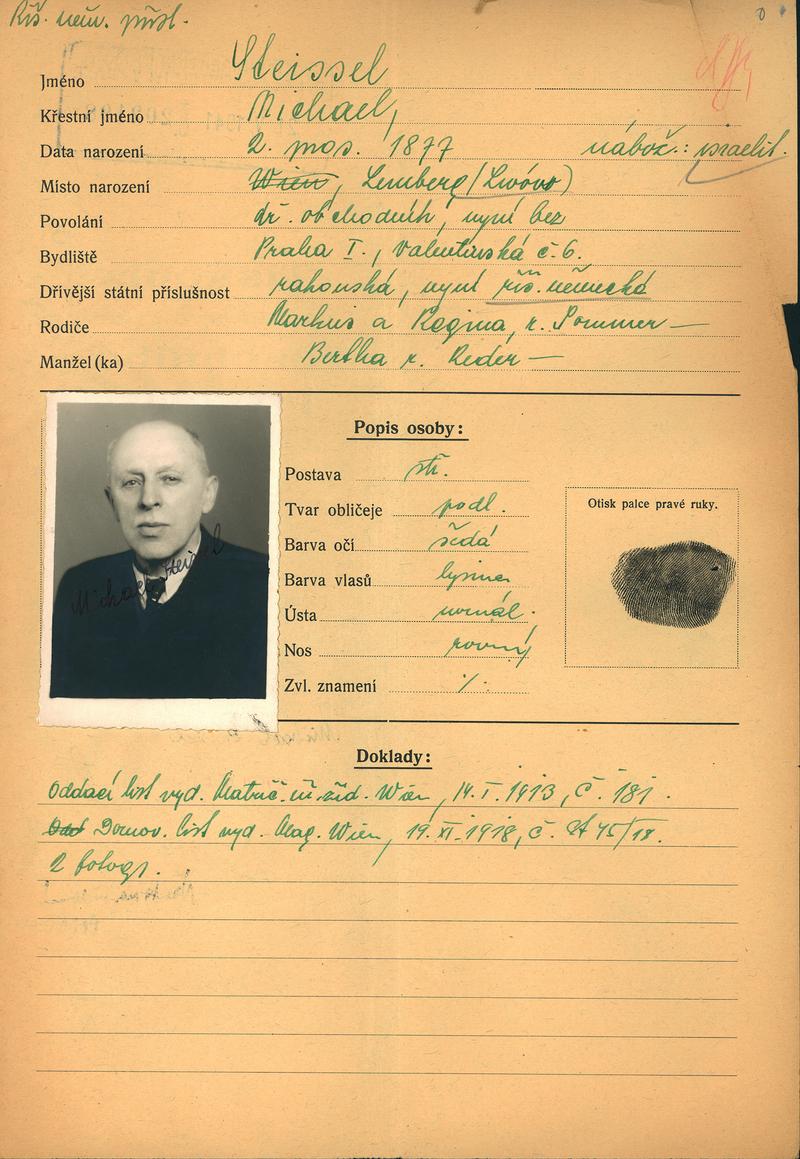 Říš. něm. přísl.
Jméno Steissel
Křestní jméno Michael,
Data narození 2. pros. 1877 nábož.: israelit.
Místo narození Wien, Lemberg (Lwówo)
Povolání úř. obchodních, nyní bez
Bydliště Praha I., Valentinská č. 6.
Dřívější státní příslušnost rakouská, nyní říš. německá
Rodiče Markus a Regina, r. Sommer —
Manžel (ka) Bertha r. Reder —
Popis osoby:
Postava stř.
Tvar obličeje podl.
Barva očí šedá
Barva vlasů lysina
Ústa normál.
Nos rovný
Zvl. znamení ./.
Otisk palce pravé ruky.
Michael Steissel
Doklady:
Oddací list vyd. Matrič. úř. žid. Wien, 14. I. 1913, č. 181.
Domov. list vyd. Mag. Wien, 19. XI. 1918, č.
2 fotogr.